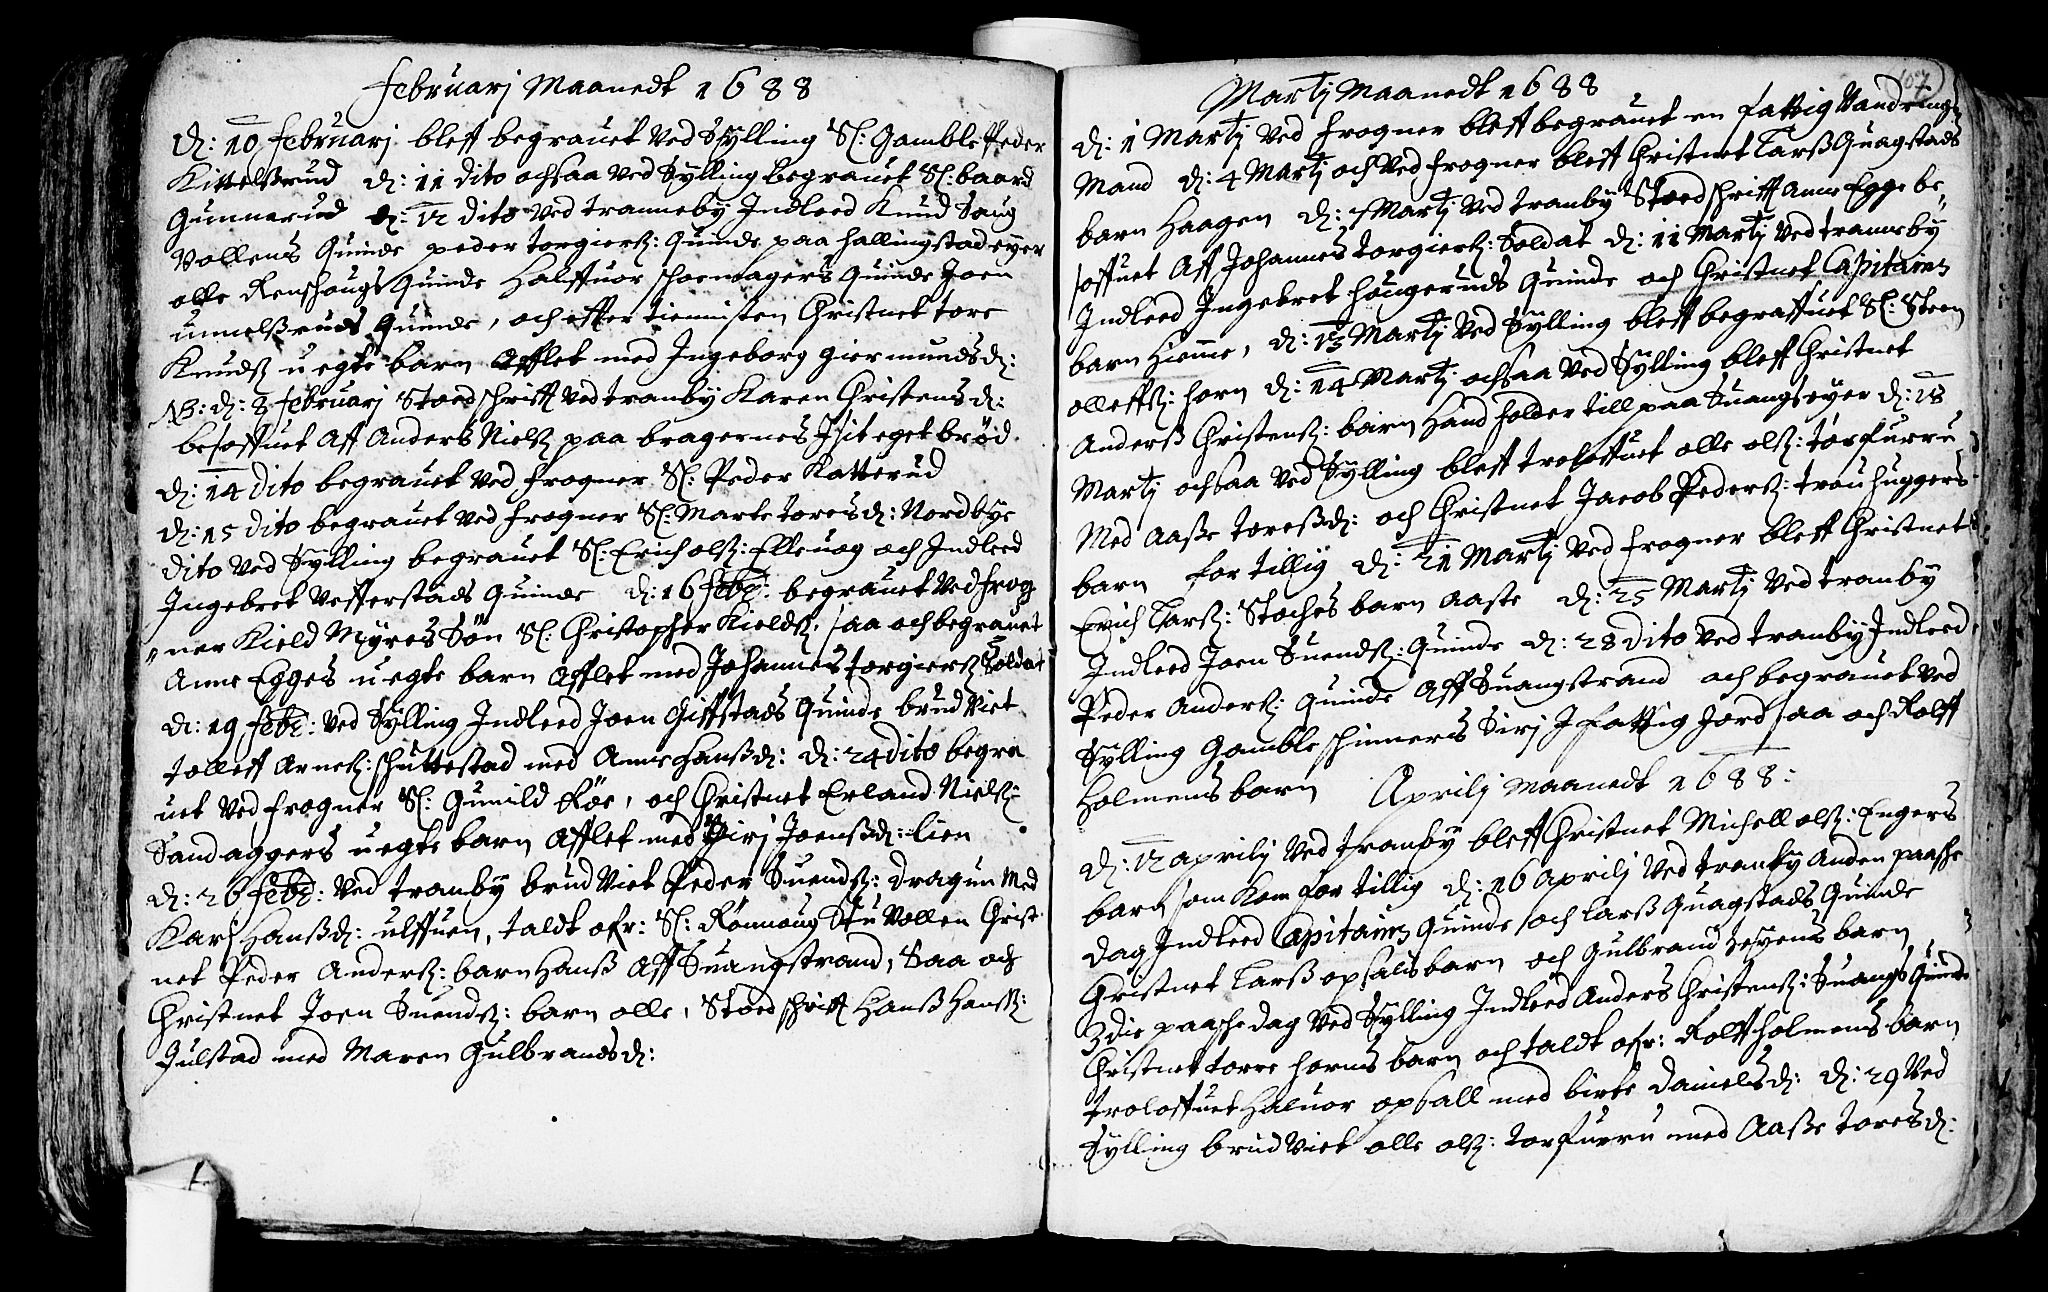 Februarj Maanedt 1688
d: 10 Februarj bleff begrauet Ved Sylling Sl: Gamble Peder
Kittelßrud d: 11 dito ochsaa Ved Sylling begrauet Sl: baard
Gunnerud d: 12 dito Ved tranneby Indleed Knud Saug
Vollens Quinde peder torgierß: Quinde paa hallingstad eyer
olle Renshougs Quinde Halffuor schoemagers Quinde Joen
unnelßruds Quinde, och effter tiennisten Christnet tore
Knudß uegte barn Afflet med Ingeborg giermundsd:
NB: d: 8 februarj Stoed schrifft Ved tranby Karen Christensd:
besoffuet Aff Anders Nielß paa bragernes I sit eget brød
d: 14 dito begrauet Ved frogner Sl: Peder Katterud
d: 15 dito begrauet Ved frogner Sl: Marte toresd: Nordbye
dito Ved Sylling begrauet Sl: Erich olß: Elleuog och Indleed
Ingebret Vefferstads Quinde d: 16 febr: begrauet Ved frog
ner Kield Myres Søn Sl: Christopher Kieldß, saa och begrauet
Anne Egges uegte barn Afflet med Johannes torgierß Soldat
d: 19 febr: Ved Sylling Indleed Joen Giffstads Quinde brudViet
tolleff Arneß: schuttestad med Anne hanßd: d: 24 dito begra
uet Ved frogner Sl: Gunild Røe, och Christnet Erland Nielß:
Sandaggers uegte barn Afflet med Sirj Joenßd: lien
d: 26 febr: Ved tranby brudViet Peder Suendß: dragun Med
Kari Hanßd: ulffuen, taldt ofr: Sl: Rønnoug StuVollen Christ
net Peder Anderß: barn Hanß Aff Suangstrand, Saa och
Christnet Joen Suendß: barn olle, Stoed schrifft Hanß Hanß:
Gulstad med Maren Gulbrandsd:
107
Martj Maanedt 1688
d: 1 Martj Ved frogner bleff begrauet en fattig Vandrings
Mand d: 4 Martj och Ved frogner bleff Christnet Larß Quagstads
barn Haagen d: 7 Martj Ved tranby Stoed schrifft Anne Egge be
soffuet Aff Johannes torgierß: Soldat d: 11 Martj Ved tranneby
Indleed Ingebret hougeruds Quinde och Christnet Capitains
barn Hiemme, d: 13 Martj Ved Sylling bleff begraffuet Sl: Steen
olleffß: horn d: 14 Martj ochsaa Ved Sylling bleff Christnet
Anderß Christenß: barn Hand holder till paa Suangs eyer d: 18
Martj ochsaa Ved Sylling bleff troloffuet olle olß: torfurru
Med Aaße toreßd: och Christnet Jacob Pederß: trouhuggers
barn for tillig d: 21 Martj Ved frogner bleff Christnet
Erich Larß: Stoches barn Aaste d: 25 Martj Ved tranby
Indleed Joen Suendß: Quinde d: 28 dito Ved tranby Indleed
Peder Anderß: Quinde Aff Suangstrand och begrauet Ved
Sylling Gamble schinners Sirj I fattig Jord saa och Rolff
Holmens barn
Aprilj Maanedt 1688:
d: 12 aprilj Ved tranby bleff Christnet Michell olß: Engers
barn som Kom for tillig d: 16 Aprilj Ved tranby Anden paasche
dag Indleed Capitains Quinde och Larß Quagstads Quinde
Christnet Larß opsals barn och Gulbrand barn
3die paasche dag Ved Sylling Indleed Anders Christenß: Suangs Quinde
Christnet torre horns barn och taldt ofr: Rolff Holmens barn
troloffuet Haluor opsall med birte danielsd: d: 29 Ved
Sylling brudViet olle olß: torfurru med Aaße toresd: